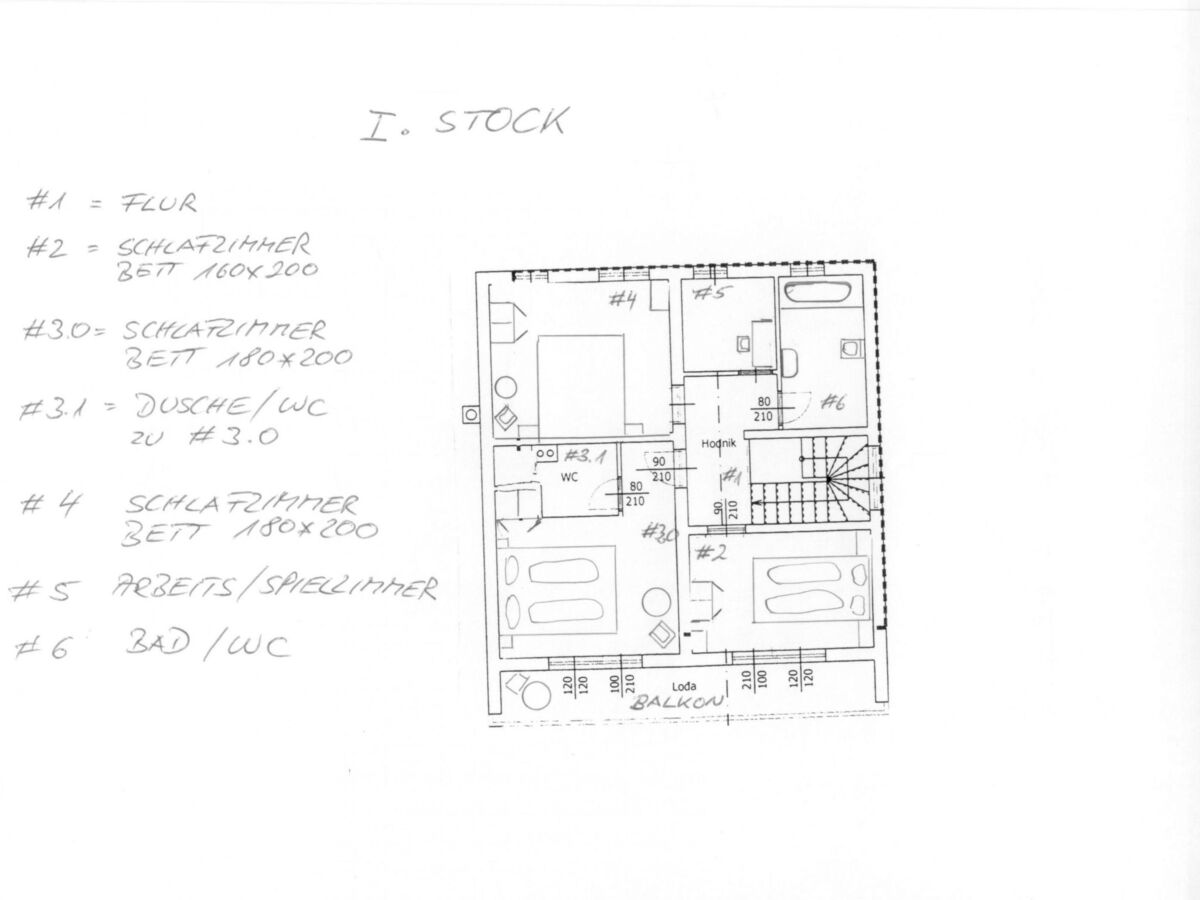 I. STOCK
#1 = FLUR
#2 = SCHLAFZIMMER
BETT 160x200
#3.0 = SCHLAFZIMMER
BETT 180x200
#3.1 = DUSCHE/WC
ZU #3.0
#4 SCHLAFZIMMER
BETT 180x200
#5 ARBEITS/SPIELZIMMER
#6 BAD/WC
#4
#5
80
210
#6
Hodnik
#3.1
WC
90
210
#1
80
210
90
210
#3.0
#2
120
120
100
210
Lođa
210
100
120
120
BALKON